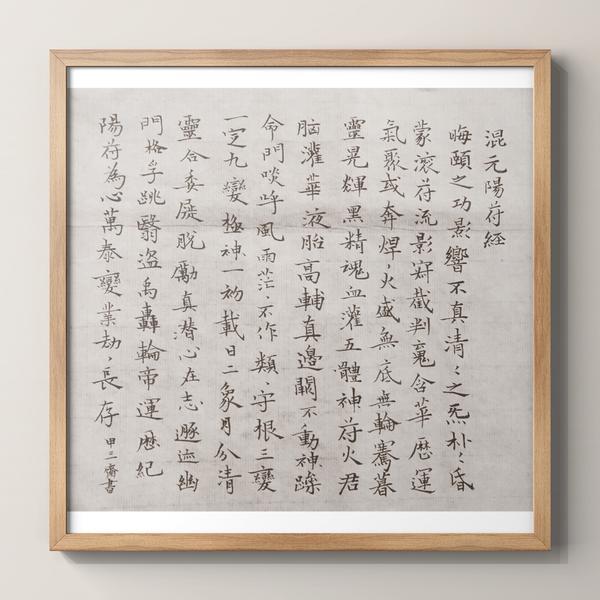 混元陽苻経
晦頤之功影響不真清々之炁朴々昏
蒙滚苻流影竂截判䰟含華歴運
氣聚或奔焊火盛無底無輪騫暮
靈晃輝黒精魂血灌五體神苻火君
脑灌華液胎高輔真邊闢不動神躁
命門啖呼風雨茫不作類守根三變
一定九變極神一初載日二象月分清
靈合委屣脱勵真潜心在志遯迹幽
門格孚跳翳盗禹轟輪帝運歴紀
陽苻為心萬泰變業劫長存
甲三齋書